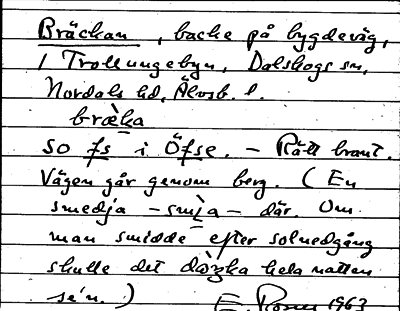 Bräckan, backe på bygdeväg,
i Trollungebyn, Dalskogs sn,
Nordals hd, Älvsb. l.
bræ̀ka
SO fs i Öfse. – Rätt brant.
Vägen går genom berg. (En
smedja – smi̲a – där. Om
man smidde efter solnedgång
skulle det hela natten
se'n.) 1963